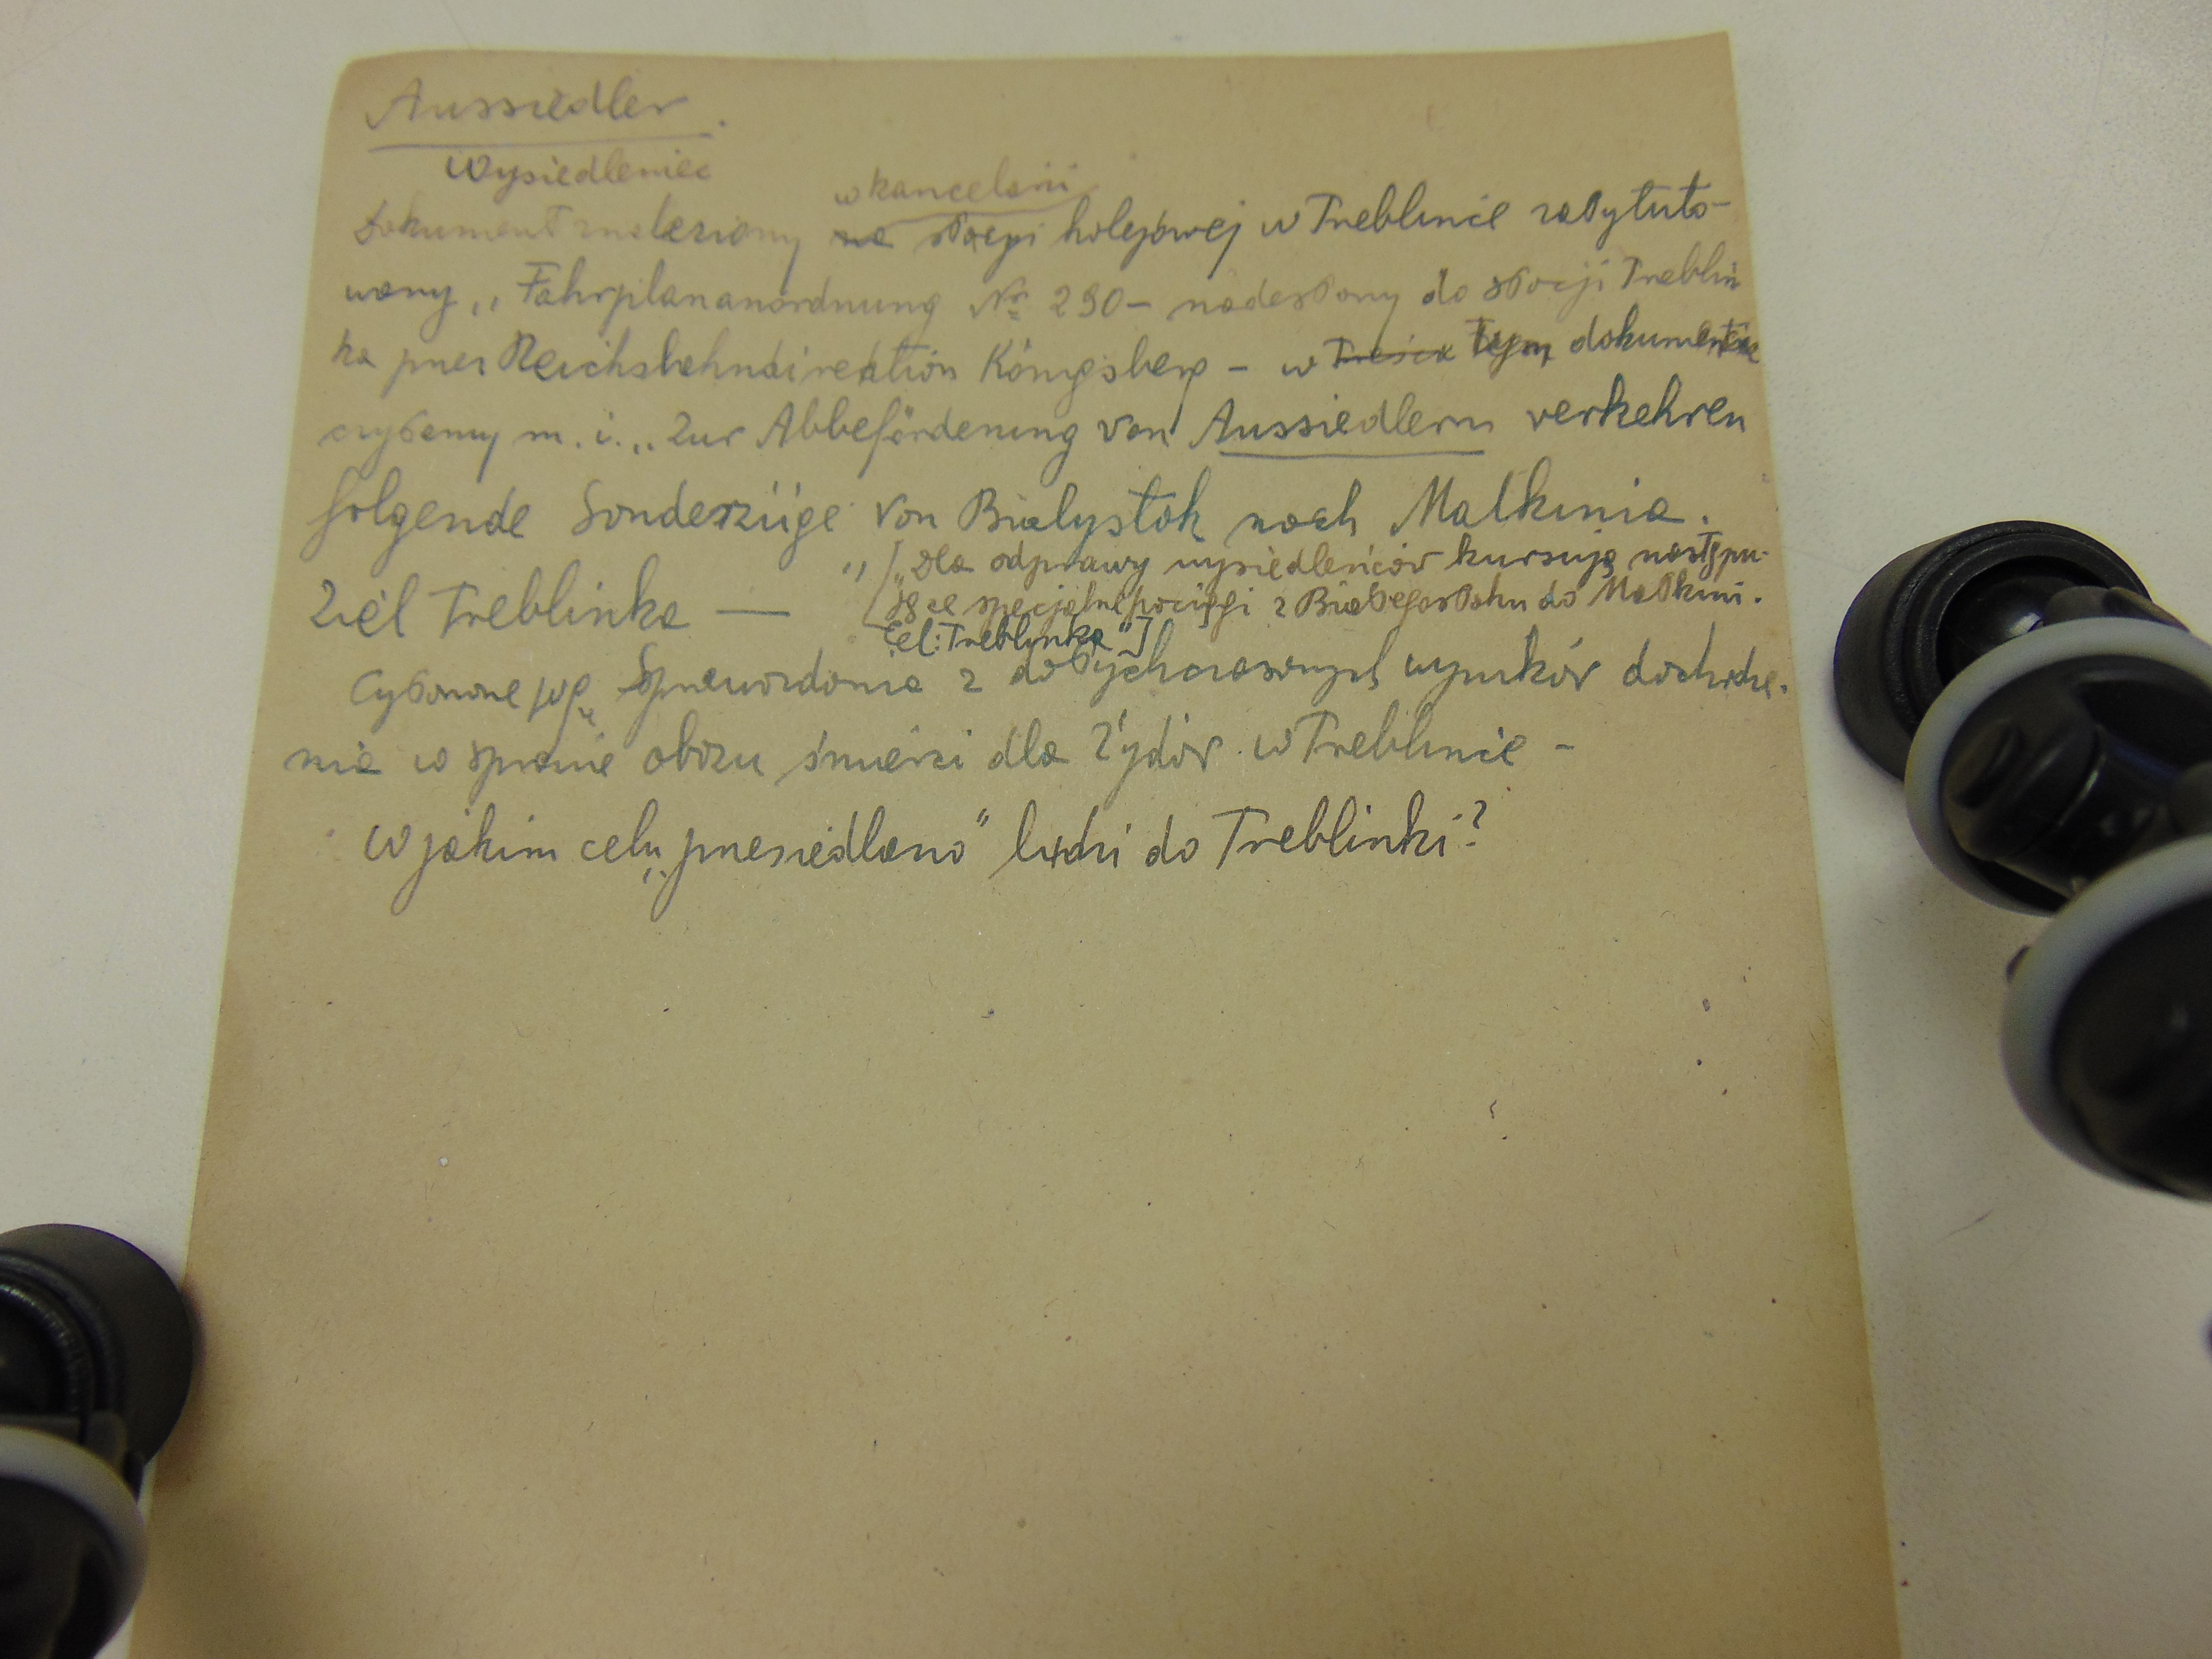 Aussiedler.
Wysiedleniec
w kancelarii
Dokument znaleziony na stacji kolejowej w Treblince zatytuło-
wany „Fahrplananordnung Nr 290 – nadesłany do stacji Treblin
ka przez Reichsbahndirektion Königsberg – w treści tym dokumencie
czytamy m. i. „Zur Abbeförderung von Aussiedlern verkehren
folgende Sonderzüge von Bialystok nach Malkinia.
Ziel Treblinka — " [„Dla odprawy wysiedleńców kursują następu-
jące specjalne pociągi z Białegostoku do Małkini.
Cel: Treblinka"]
Cytowane wg Sprawozdania z dotychczasowych wyników dochodze-
nia w sprawie obozu śmierci dla Żydów w Treblince –
W jakim celu „przesiedlano" ludzi do Treblinki?